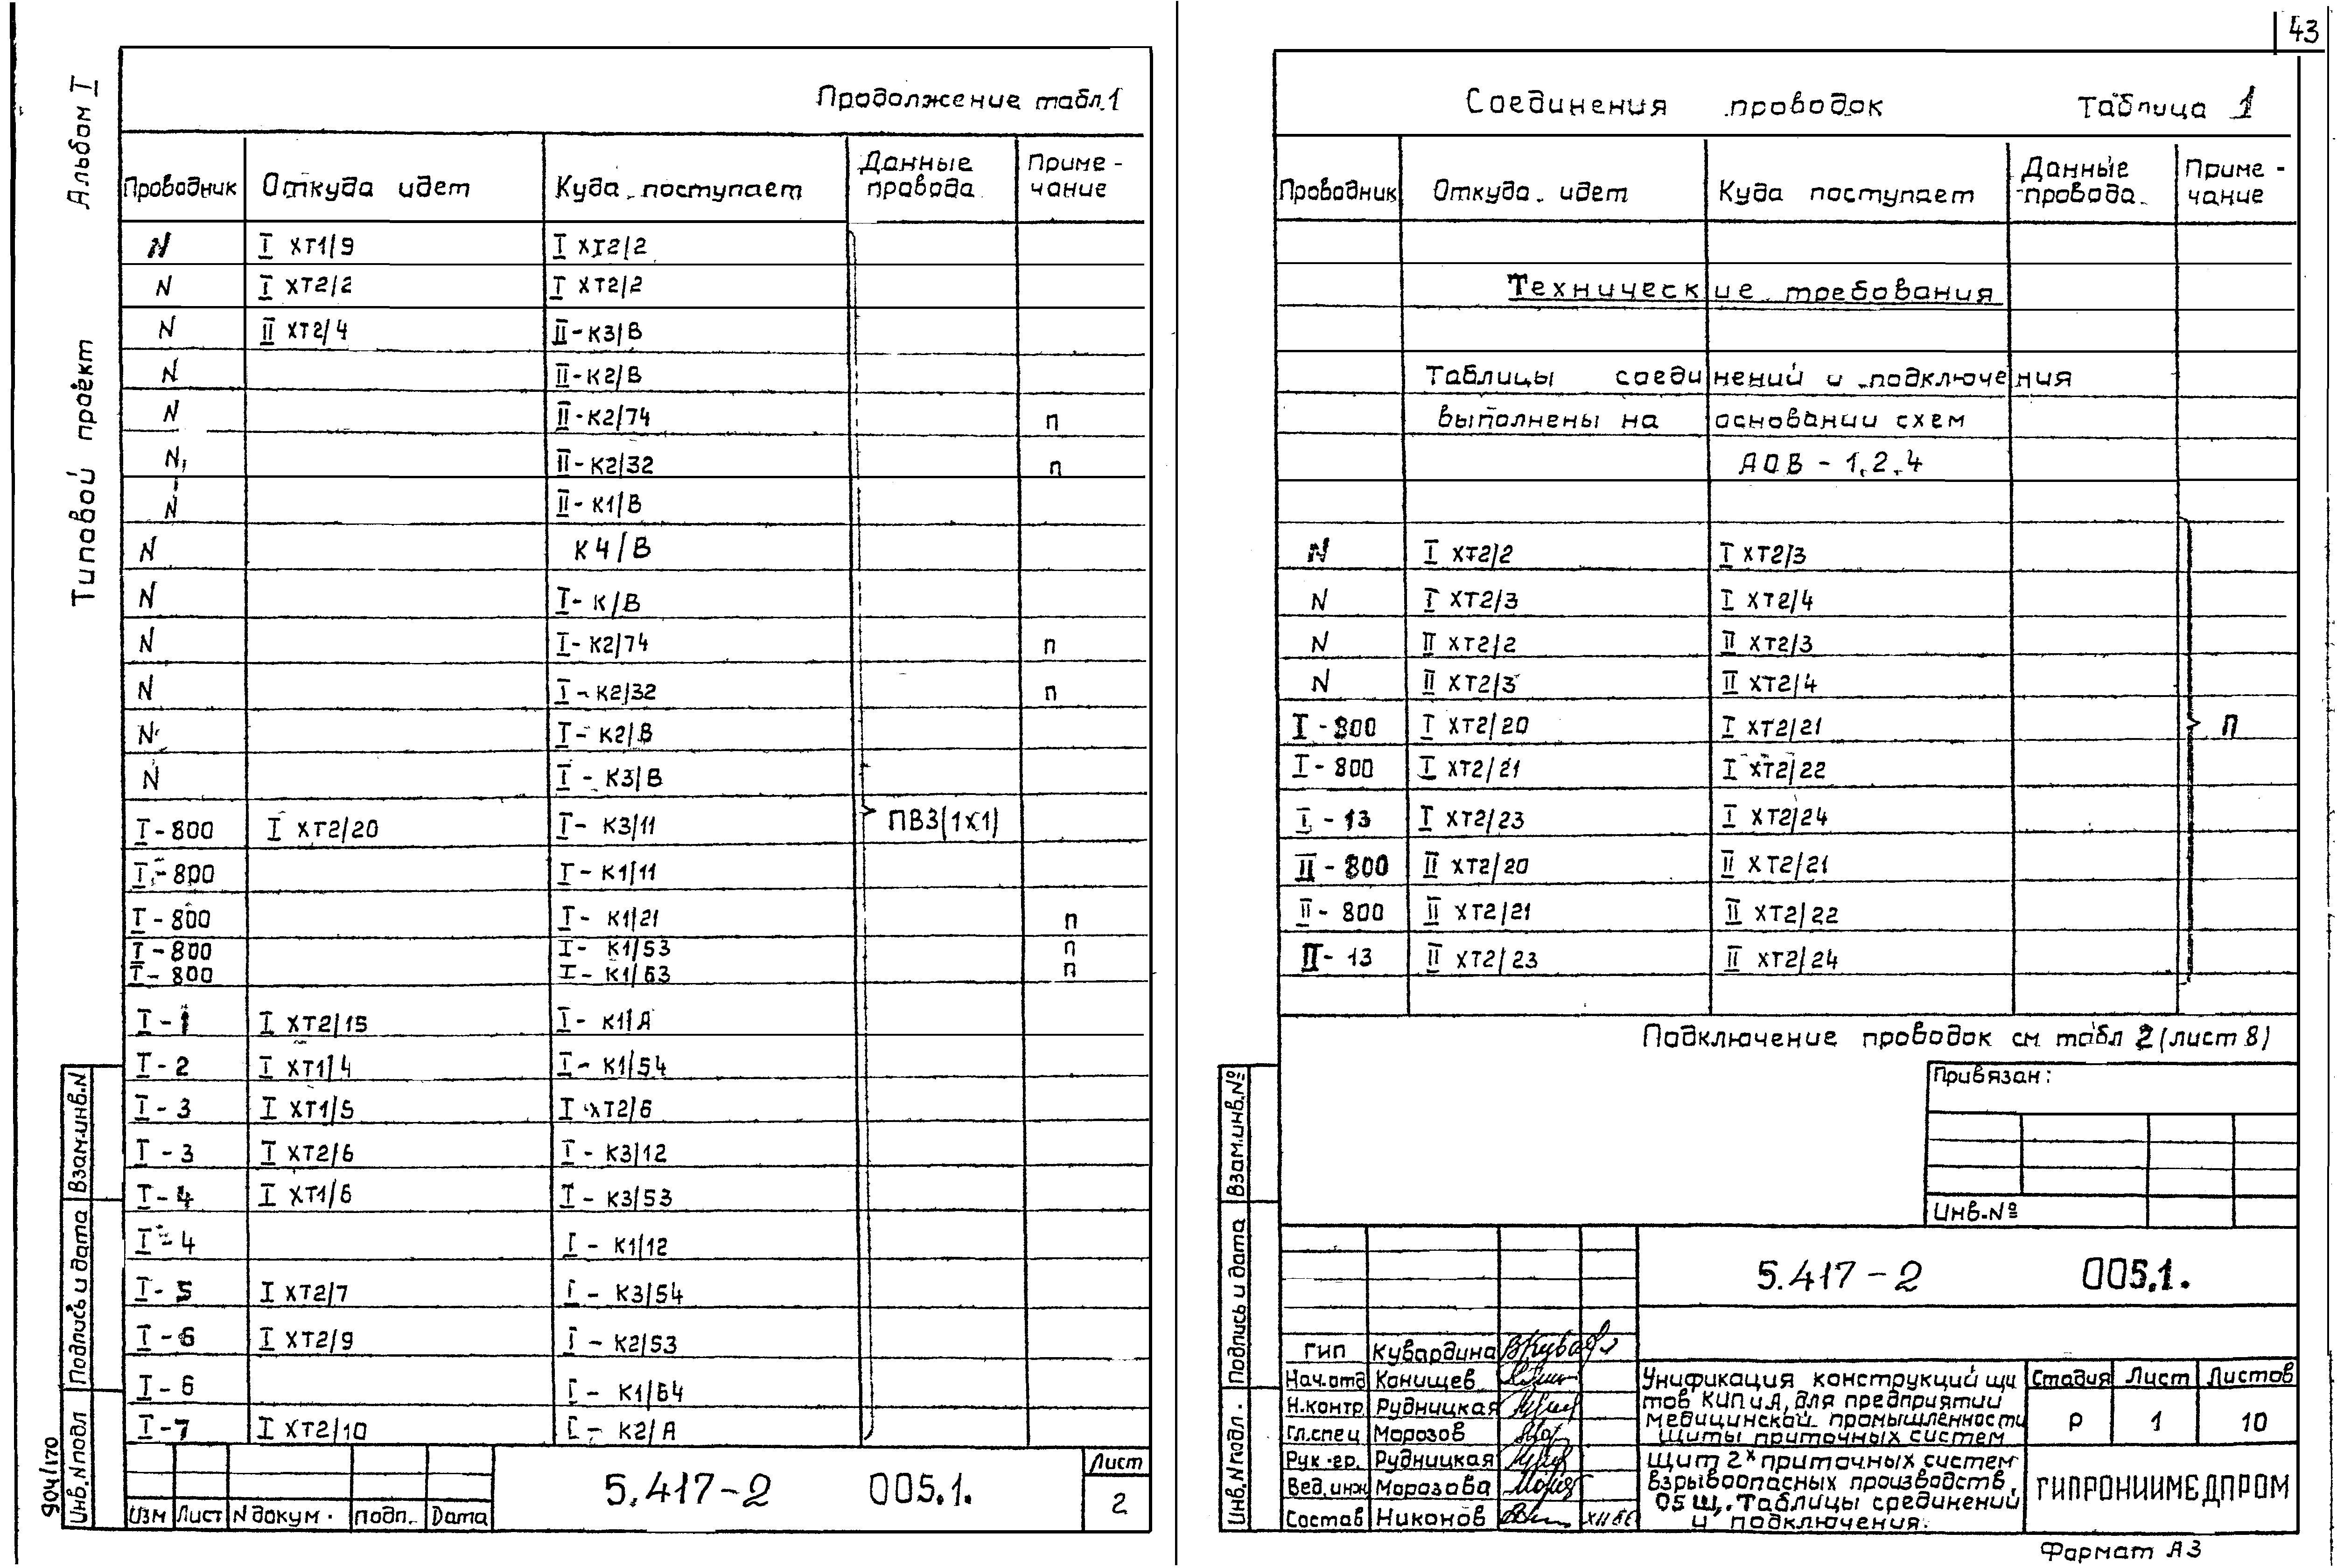 43
Альбом I
Типовой проект
Продолжение табл.1
Проводник Откуда идет Куда поступает Данные провода Приме-чание
N I XT1/9 I XT2/2
N I XT2/2 I XT2/2
N II XT2/4 II-К3/В
N II-К2/В
N II-К2/74 п
N II-К2/32 п
N II-К1/В
N К4/В
N I-К/В
N I-К2/74 п
N I-К2/32 п
N I-К2/В
N I-К3/В
I-800 I XT2/20 I-К3/11 ПВ3(1х1)
I-800 I-К1/11
I-800 I-К1/21 п
I-800 I-К1/53 п
I-800 I-К1/63 п
I-1 I XT2/15 I-К1/А
I-2 I XT1/4 I-К1/54
I-3 I XT1/5 I XT2/6
I-3 I XT2/6 I-К3/12
I-4 I XT1/6 I-К3/53
I-4 I-К1/12
I-5 I XT2/7 I-К3/54
I-6 I XT2/9 I-К2/53
I-6 I-К1/64
I-7 I XT2/10 I-К2/А
Взам.инв.N
Подпись и дата
Инв.N подл
904/170
Изм Лист N докум. подп. Дата
5.417-2 005.1.
Лист
2
Соединения проводок Таблица 1
Проводник Откуда идет Куда поступает Данные провода Приме-чание
Технические требования
Таблицы соединений и подключения
выполнены на основании схем
АОВ - 1.2.4
N I XT2/2 I XT2/3
N I XT2/3 I XT2/4
N II XT2/2 II XT2/3
N II XT2/3 II XT2/4
I-800 I XT2/20 I XT2/21 П
I-800 I XT2/21 I XT2/22
I-13 I XT2/23 I XT2/24
II-800 II XT2/20 II XT2/21
II-800 II XT2/21 II XT2/22
II-13 II XT2/23 II XT2/24
Подключение проводок см табл 2 (лист 8)
Привязан:
Инв.№
Взам.инв.№
Подпись и дата
Инв.N подл.
5.417-2 005.1.
ГИП Кувардина
Нач.отд Конищев
Н.контр Рудницкая
Гл.спец Морозов
Рук.гр. Рудницкая
Вед.инж Морозова
Состав Никонов
Унификация конструкций щи
тов КИПиА, для предприятий
медицинской промышленности
Щиты приточных систем
Щит 2х приточных систем
взрывоопасных производств,
05Щ. Таблицы соединений
и подключения.
Стадия Лист Листов
Р 1 10
ГИПРОНИИМЕДПРОМ
Формат А3